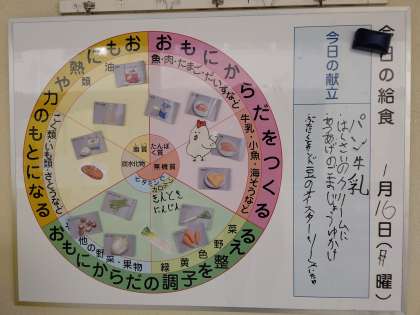 今日の給食　1月16日(月曜)
今日の献立
パン 牛乳
はくさいのクリームに
あつあげのまーじゃんゆかけ
ぶたにくと豆のオイスターソースいため
おもにからだをつくる
魚・肉・たまご・だいずなど
牛乳・小魚・海そうなど
おもに熱や力のもとになる
油類
こく類・いも類・さとうなど
おもにからだの調子を整える
緑黄色野菜
その他の野菜・果物
脂質
たんぱく質
炭水化物
無機質
ビタミン
カロテン
にんじん